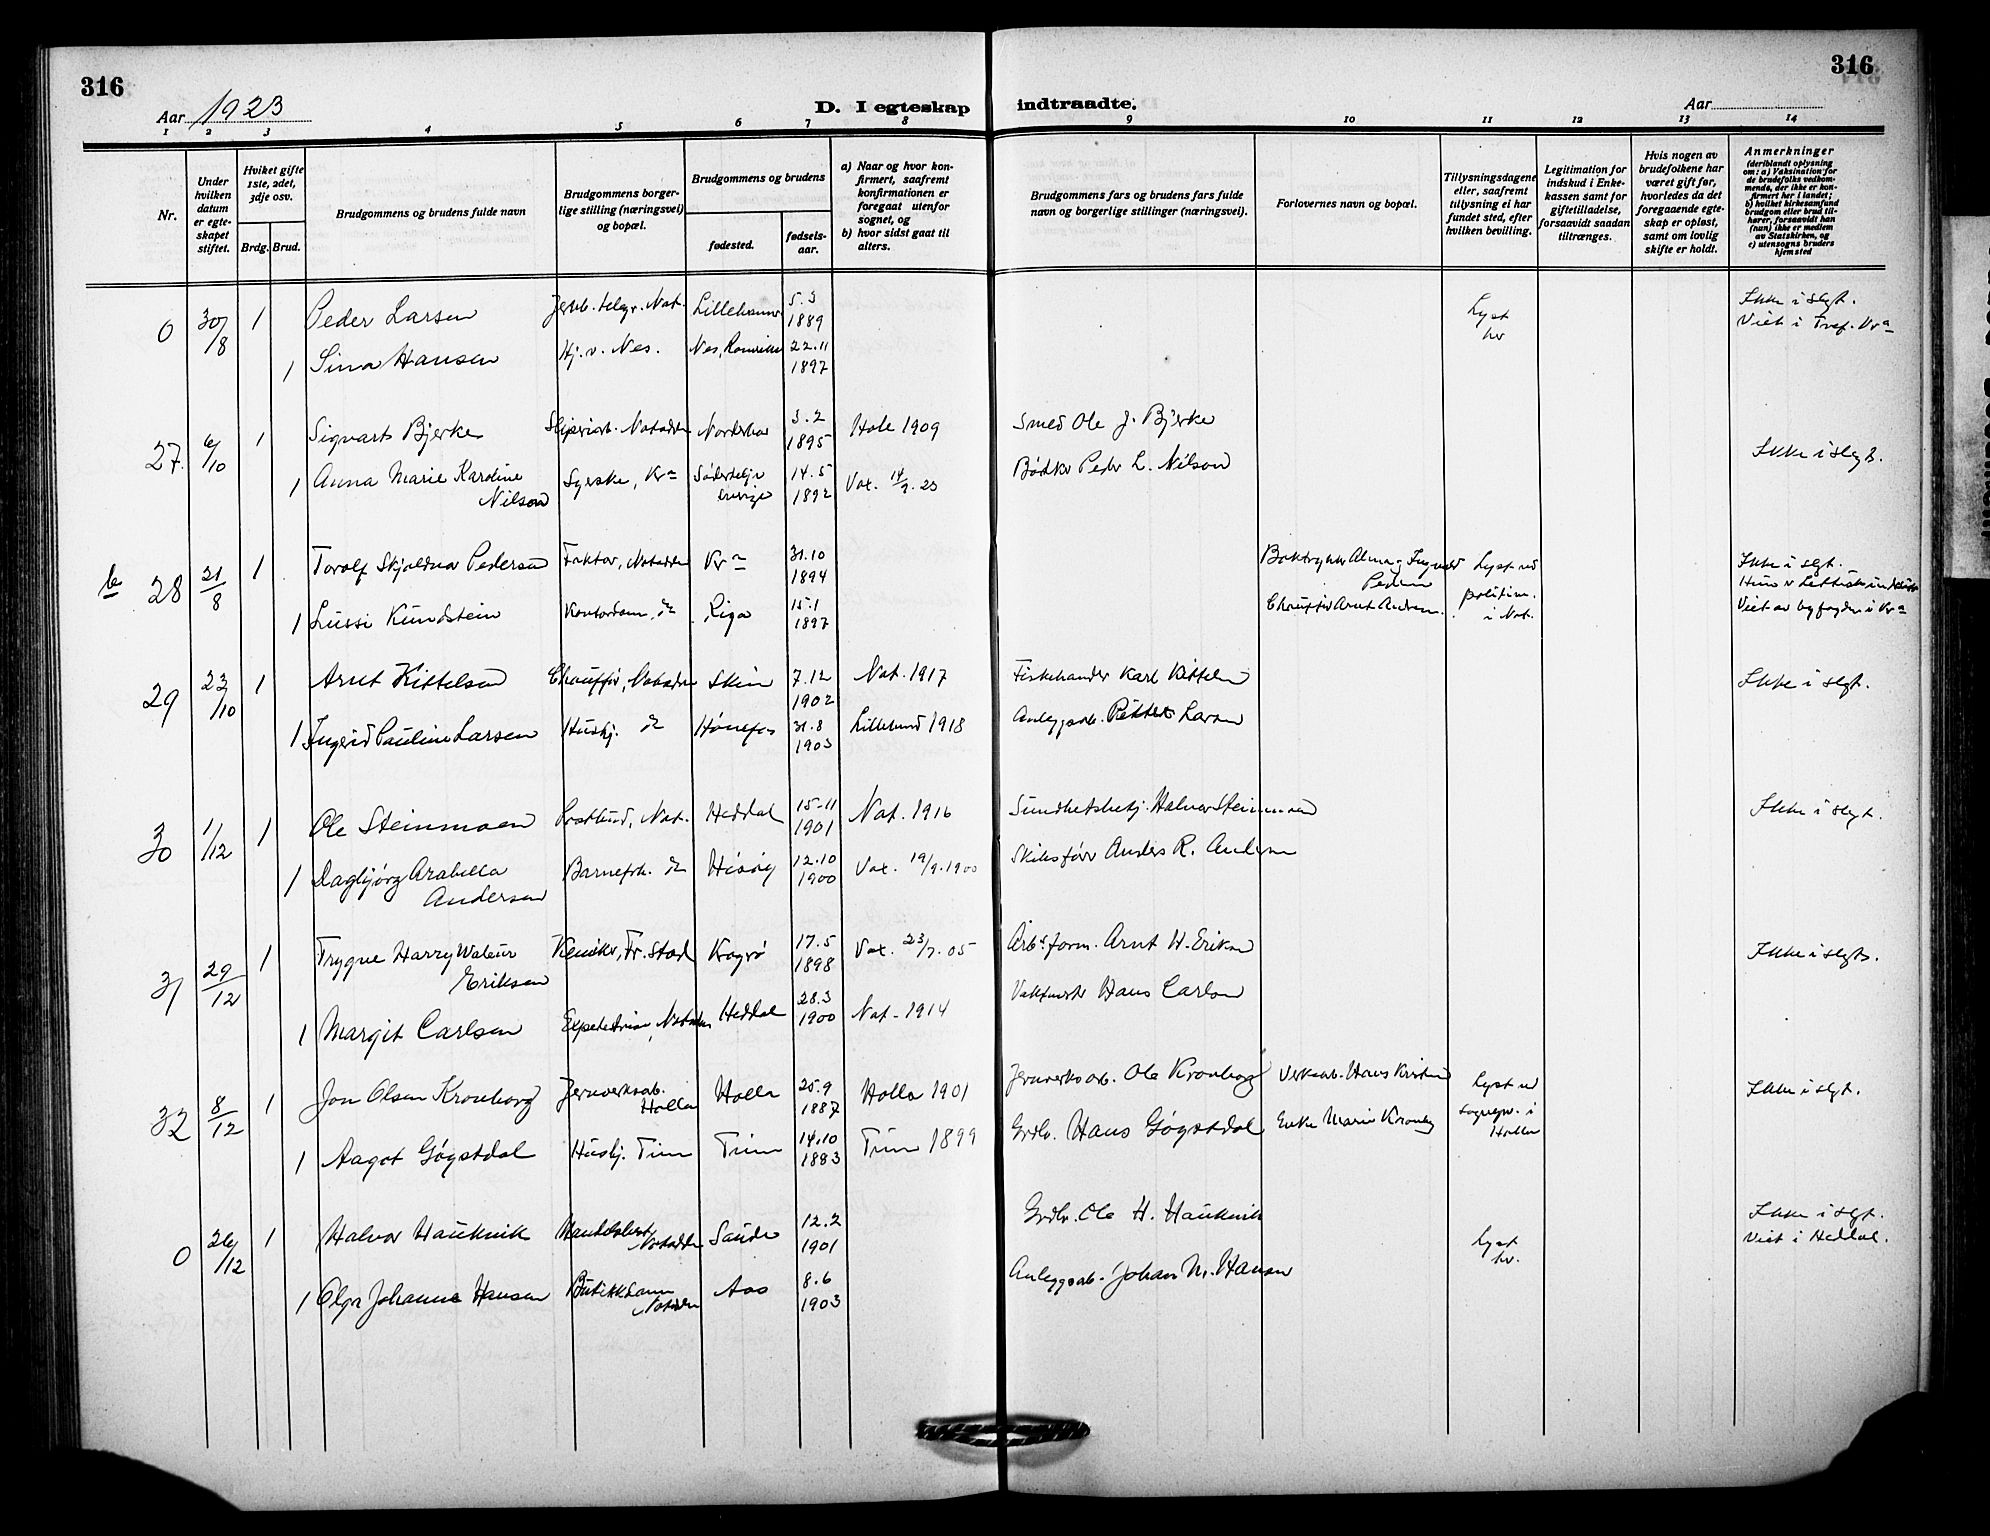 316
316
Aar 1923
D. I egteskap indtraadte.
Aar
1 2 3 4 5 6 7 8 9 10 11 12 13 14
Nr.
Under
hvilken
datum
er egte-
skapet
stiftet.
Hviket gifte
1ste, 2det,
3dje osv.
Brdg. Brud.
Brudgommens og brudens fulde navn
Brudgommens borger-
lige stilling (næringsvei)
og bopæl.
Brudgommens og brudens
fødested.
fødsels-
aar.
a) Naar og hvor kon-
firmert, saafremt
konfirmationen er
foregaat utenfor
sognet, og
b) hvor sidst gaat til
alters.
Brudgommens fars og brudens fars fulde
navn og borgerlige stillinger (næringsvei).
Forlovernes navn og bopæl.
Tillysningsdagene
eller, saafremt
tillysning ei har
fundet sted, efter
hvilken bevilling.
Legitimation for
indskud i Enke-
kassen samt for
giftetilladelse,
forsaavidt saadan
tiltrænges.
Hvis nogen av
brudefolkene har
været gift før,
hvorledes da det
foregaaende egte-
skap er opløst,
samt om lovlig
skifte er holdt.
Anmerkninger
(deriblandt oplysning
om: a) Vaksination for
de brudefolks vedkom-
mende, der ikke er kon-
firmert her i landet;
b) hvilket kirkesamfund
brudgom eller brud til-
hører, forsaavidt han
(hun) ikke er medlem
av Statskirken, og
c) utensogns bruders
hjemsted
0 30/8 1 Peder Larsen Jernb. telegr. Not. Lillehamm 5.3 1889 Lyst hr Ikke i slgt.
Viet i Tref. Kra
1 Sina Hansen Hj. v. Nes. Nes, Romerike 22.11 1897
27. 6/10 1 Sigvart Bjerke Notodden Norderhov 3.2 1895 Hole 1909 Smed Ole J. Bjerke Ikke i slegt.
1 Anna Marie Karoline
Nilson Syerske, Kra Södertelje
Sverige 14.5 1892 Vax. 14/9.23 Bødker Peder L. Nilson
b 28 21/8 1 Torolf Skjoldvar Pedersen Faktor, Notodden Kra 31.10 1894 Boktrykker
Pedersen Lyst ved
politim.
i Not. Ikke i slgt.
Viet av byfogden i Kra
1 Lussi Kundstein Kontordam. do Riga 15.1 1897 Chauffør Arnt Andersen.
29 23/10 1 Arnt Kittelsen Chauffør, Notodden Skien 7.12 1902 Not. 1917 Fiskehandler Karl Kittelsen Ikke i slgt.
1 Ingrid Pauline Larsen Hushj. do Hønefos 31.8 1903 Lillesand 1918 Anleggsarb. Petter Larsen
30 1/12 1 Ole Steinmoen Postbud, Not. Heddal 15-11 1901 Not. 1916 Sundhetsbetj. Halvor Steinmoen Ikke i slegt.
1 Dagbjørg Arabella
Andersen Barnefrk. do Hisøy 12.10 1900 Vax. 19/9.1900 Skibsfører Anders R. Andersen
31 29/12 1 Trygve Harry
Eriksen Kemiker, Fr. Stad Kragrø 17.5 1898 Vax. 23/7.05 Arbs form. Arnt H. Eriksen Ikke i slegt.
1 Margit Carlsen Expeditrise, Notodden Heddal 28.3 1900 Not. 1914 Vaktmester Hans Carlsen
32 8/12 1 Jon Olsen Kronborg Jernverksarb.
Holla Holla 25.9 1887 Holla 1901 Jernverksarb. Ole Kronborg Verksarb. Hans Kristensen Lyst ved
sognepr. i
Holla Ikke i slgt.
1 Aagot Gøgstdal Hushj. Tinn Tinn 14.10 1883 Tinn 1899 Grdbr. Hans Gøgstdal Enke Marie Kronborg
0 26/12 1 Halvor Haukvik Handelsbest.
Notodden Saude 12.2 1901 Grdbr. Ole H. Haukvik Lyst
hr. Ikke i slgt.
Viet i Heddal.
1 Olga Johanne Hansen Butikkdame
Notodden Aas 8.6 1903 Anleggsarb. Johan M. Hansen